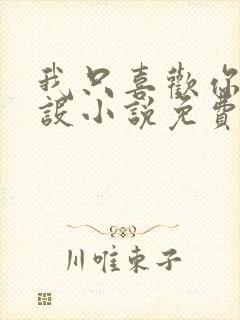 我只喜歡你
設小說免費
川唯東子